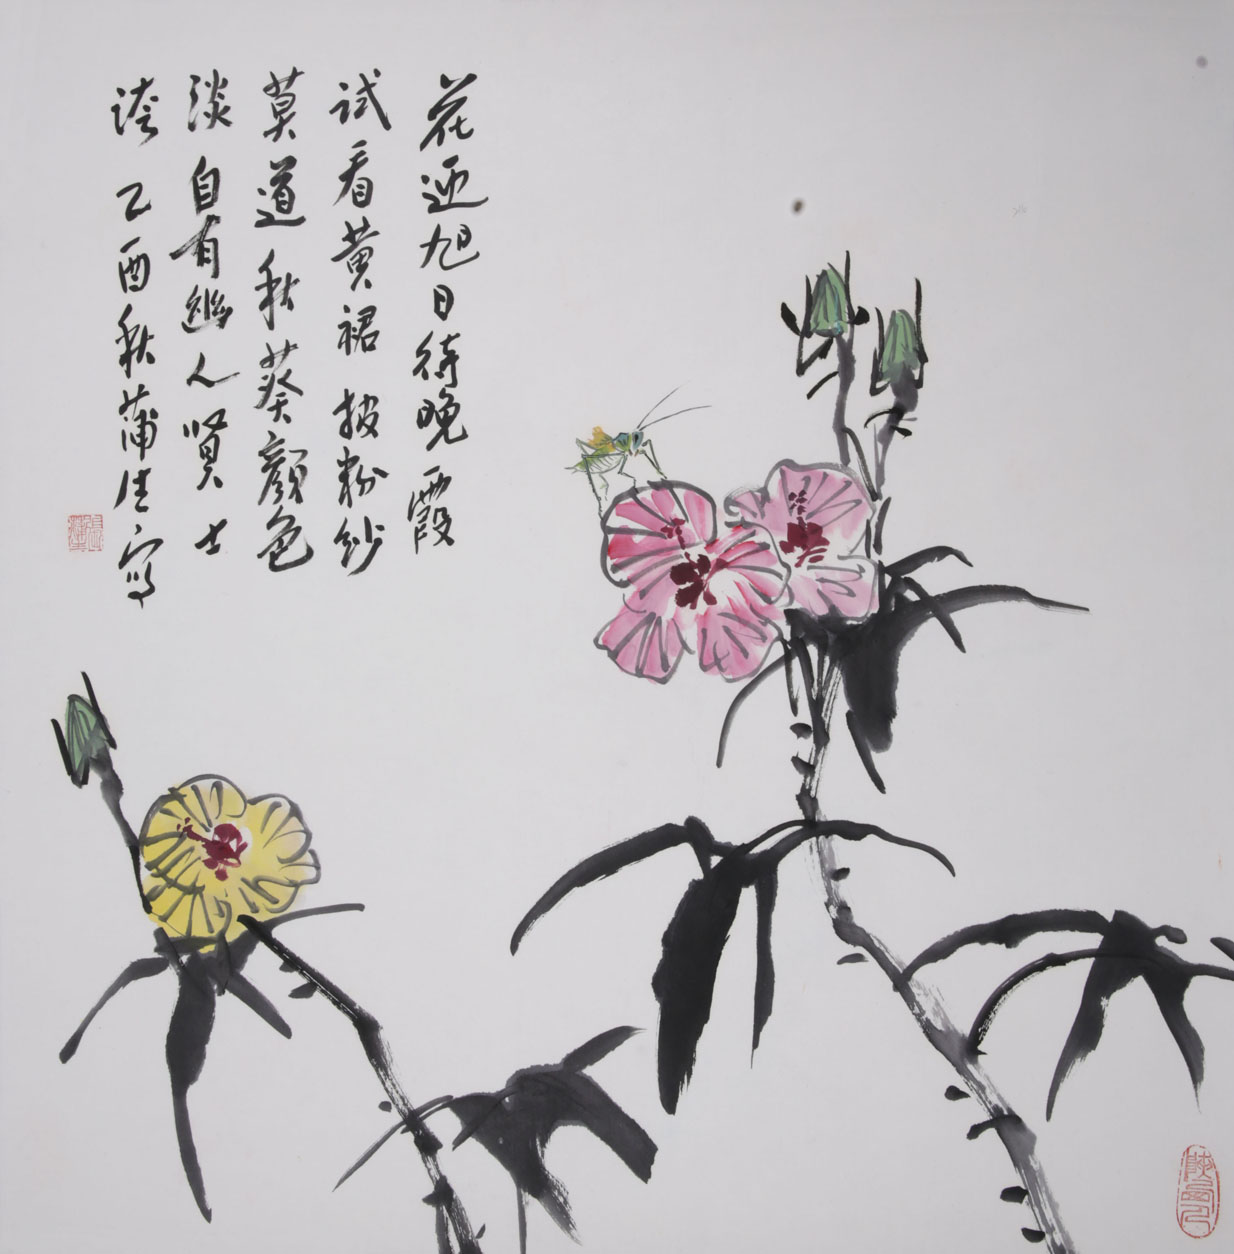 花迎旭日待晚霞
试看黄裙披粉纱
莫道秋葵颜色
淡自有幽人贤士
誇乙酉秋蒲生写